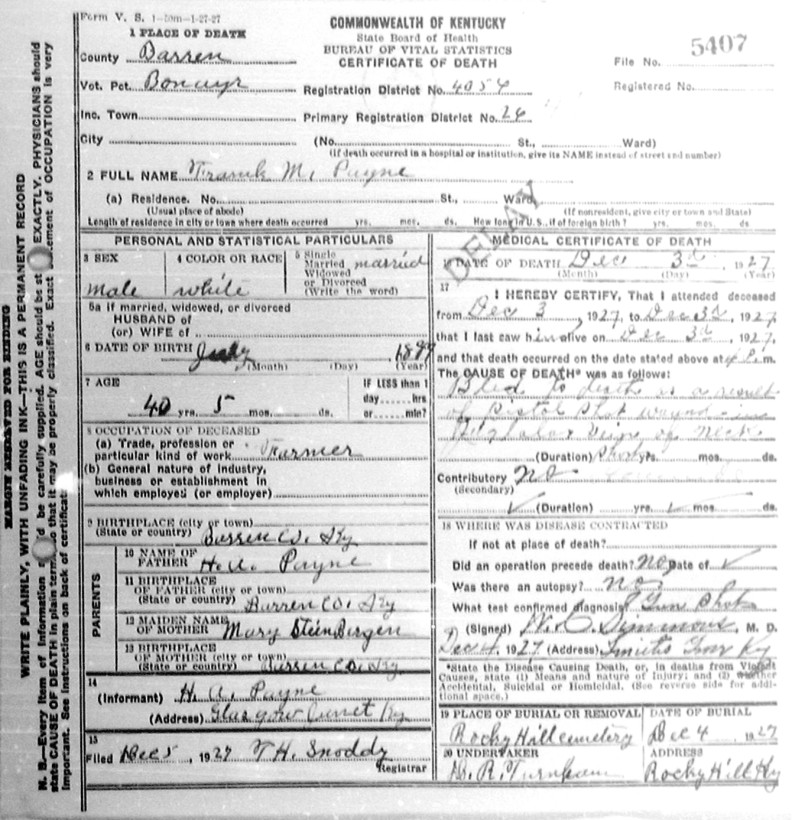 Form V. S. 1-50m-1-27-27
COMMONWEALTH OF KENTUCKY
State Board of Health
BUREAU OF VITAL STATISTICS
CERTIFICATE OF DEATH
1 PLACE OF DEATH
County Barren
Vot. Pct. Bonayr
Inc. Town
City
Registration District No. 4054
Primary Registration District No. 26
File No. 5407
Registered No.
(No. St., Ward)
(If death occurred in a hospital or institution, give its NAME instead of street and number)
2 FULL NAME Frank M. Payne
(a) Residence. No. St., Ward
(Usual place of abode) (If nonresident, give city or town and State)
Length of residence in city or town where death occurred yrs. mos. ds. How long in U.S., if of foreign birth? yrs. mos. ds.
DELAY
PERSONAL AND STATISTICAL PARTICULARS
3 SEX
male
4 COLOR OR RACE
white
5 Single
Married
Widowed
or Divorced
(Write the word)
married
5a If married, widowed, or divorced
HUSBAND of
(or) WIFE of
6 DATE OF BIRTH July 188
(Month) (Day) (Year)
7 AGE
40 yrs. 5 mos. ds.
IF LESS than 1
day hrs
or min?
8 OCCUPATION OF DECEASED
(a) Trade, profession or
particular kind of work Farmer
(b) General nature of industry,
business or establishment in
which employed (or employer)
9 BIRTHPLACE (city or town)
(State or country) Barren Co. Ky
PARENTS
10 NAME OF
FATHER H. A. Payne
11 BIRTHPLACE
OF FATHER (city or town)
(State or country) Barren Co. Ky
12 MAIDEN NAME
OF MOTHER Mary SteenBergen
13 BIRTHPLACE
OF MOTHER (city or town)
(State or country) Barren Co. Ky
14
(Informant) H. A. Payne
(Address) Glasgow Ky
15
Filed Dec 5, 1927 T. H. Snoddy
Registrar
MEDICAL CERTIFICATE OF DEATH
16 DATE OF DEATH Dec 3d, 1927
(Month) (Day) (Year)
17
I HEREBY CERTIFY, That I attended deceased
from Dec 3, 1927, to Dec 3d, 1927,
that I last saw him alive on Dec 3d, 1927,
and that death occurred on the date stated above at P. m.
The CAUSE OF DEATH* was as follows:
Bled to death as a result
of pistol shot wound in
Jugular vein of neck
(Duration) Short yrs. mos. ds.
Contributory No
(Secondary)
(Duration) yrs. mos. ds.
18 WHERE WAS DISEASE CONTRACTED
If not at place of death?
Did an operation precede death? No Date of
Was there an autopsy? No
What test confirmed diagnosis? Gun Shot
(Signed) W. C. Simmons, M. D.
Dec 4, 1927 (Address) Smiths Grov Ky
*State the Disease Causing Death, or, in deaths from Violent
Causes, state (1) Means and nature of Injury; and (2) whether
Accidental, Suicidal or Homicidal. (See reverse side for addi-
tional space.)
19 PLACE OF BURIAL OR REMOVAL
Rocky Hill cemetery
DATE OF BURIAL
Dec 4 1927
20 UNDERTAKER
R. Turnham
ADDRESS
Rocky Hill Ky
MARGIN RESERVED FOR BINDING
WRITE PLAINLY, WITH UNFADING INK—THIS IS A PERMANENT RECORD
N. B.—Every item of information should be carefully supplied. AGE should be stated EXACTLY. PHYSICIANS should
state CAUSE OF DEATH in plain terms, so that it may be properly classified. Exact statement of OCCUPATION is very
important. See instructions on back of certificate.